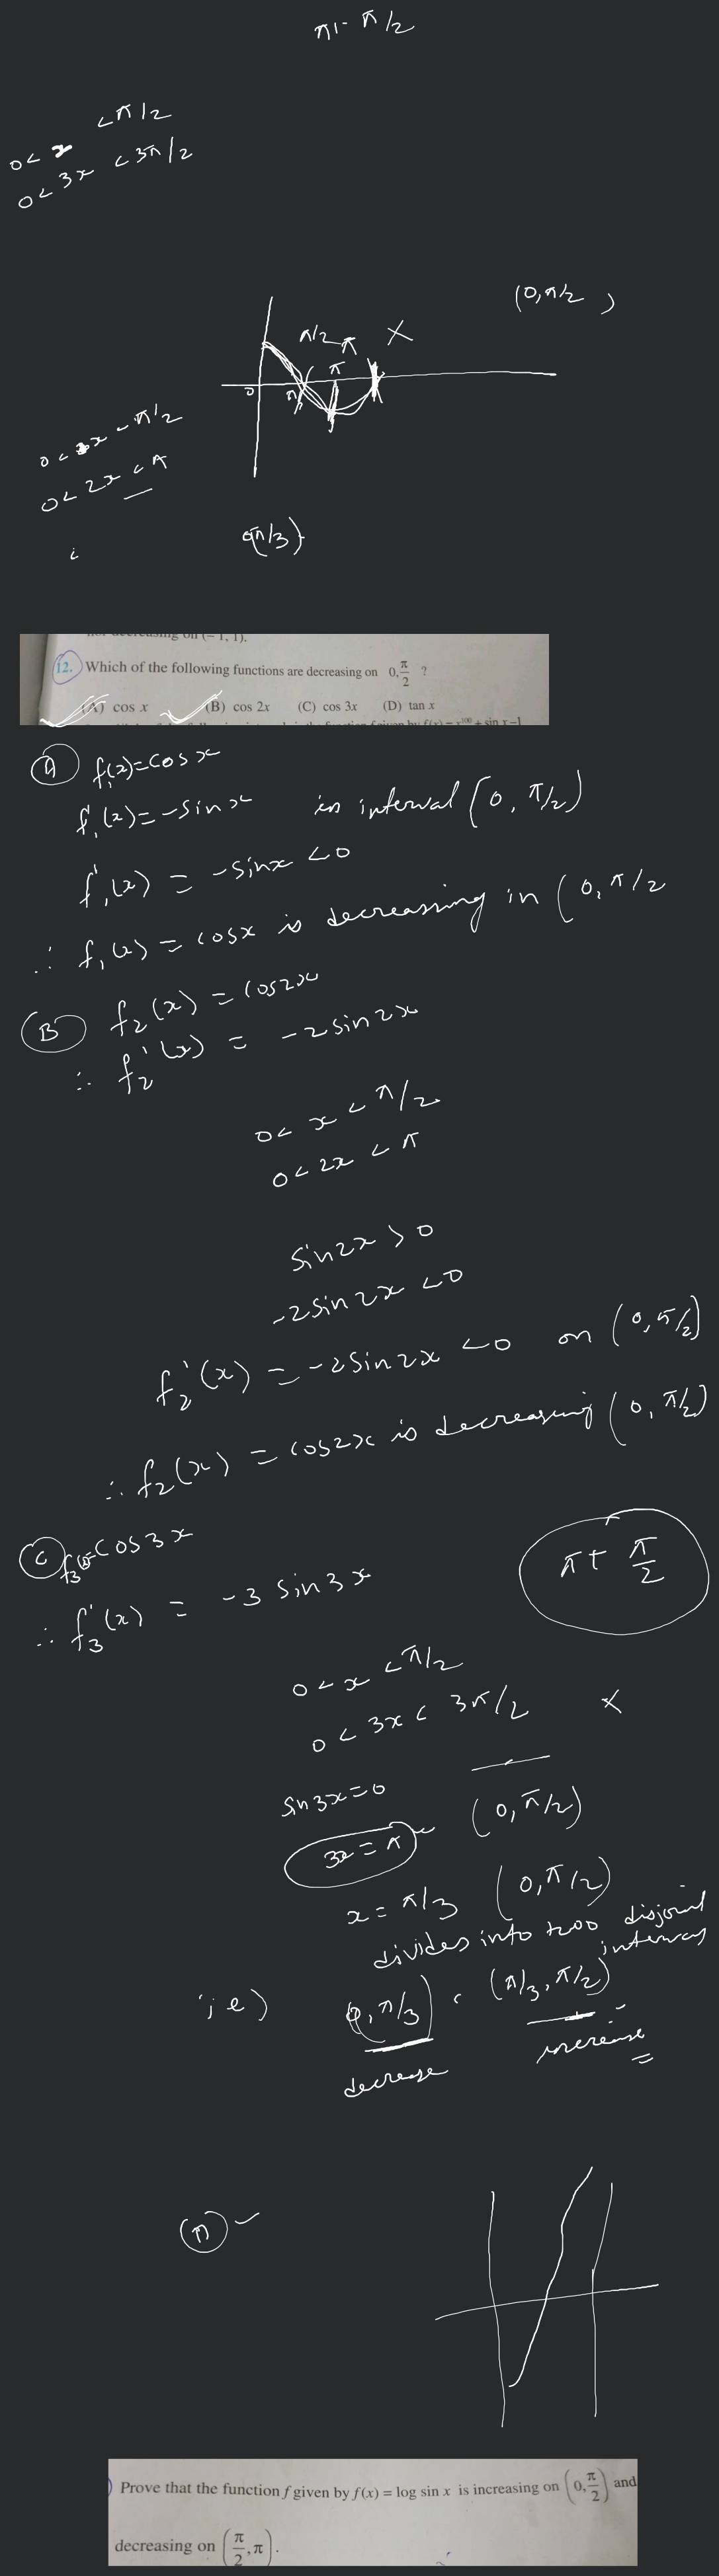 π - π/2
0 < x < π/2
0 < 3x < 3π/2
(0, π/2 )
π/2 π
π
0
0 < x < π/2
0 < 2x < π
π/3)
not decreasing on (– 1, 1).
12. Which of the following functions are decreasing on 0, π/2 ?
(A) cos x (B) cos 2x (C) cos 3x (D) tan x
A f₁(x)=cosx
f₁'(x)=-sinx in interval (0, π/2)
f₁'(x) = -sinx <0
∴ f₁(x) = cosx is decreassing in (0, π/2
B f₂(x) = cos2x
∴ f₂'(x) = -2sin2x
0< x < π/2
0< 2x < π
sin2x > 0
-2sin2x <0
f₂'(x) = -2sin2x <0 on (0, π/2)
∴ f₂(x) = cos2x is decreasing (0, π/2)
C f₃(x)=cos3x
π + π/2
∴ f₃'(x) = -3 sin3x
0 < x < π/2
0 < 3x < 3π/2 ×
sin3x=0 (0, π/2)
3x = π
x = π/3 (0, π/2)
divides into two disjoint
intervals
ie) (0, π/3) (π/3, π/2)
decrease increase
Prove that the function f given by f(x) = log sin x is increasing on (0, π/2) and
decreasing on (π/2, π).